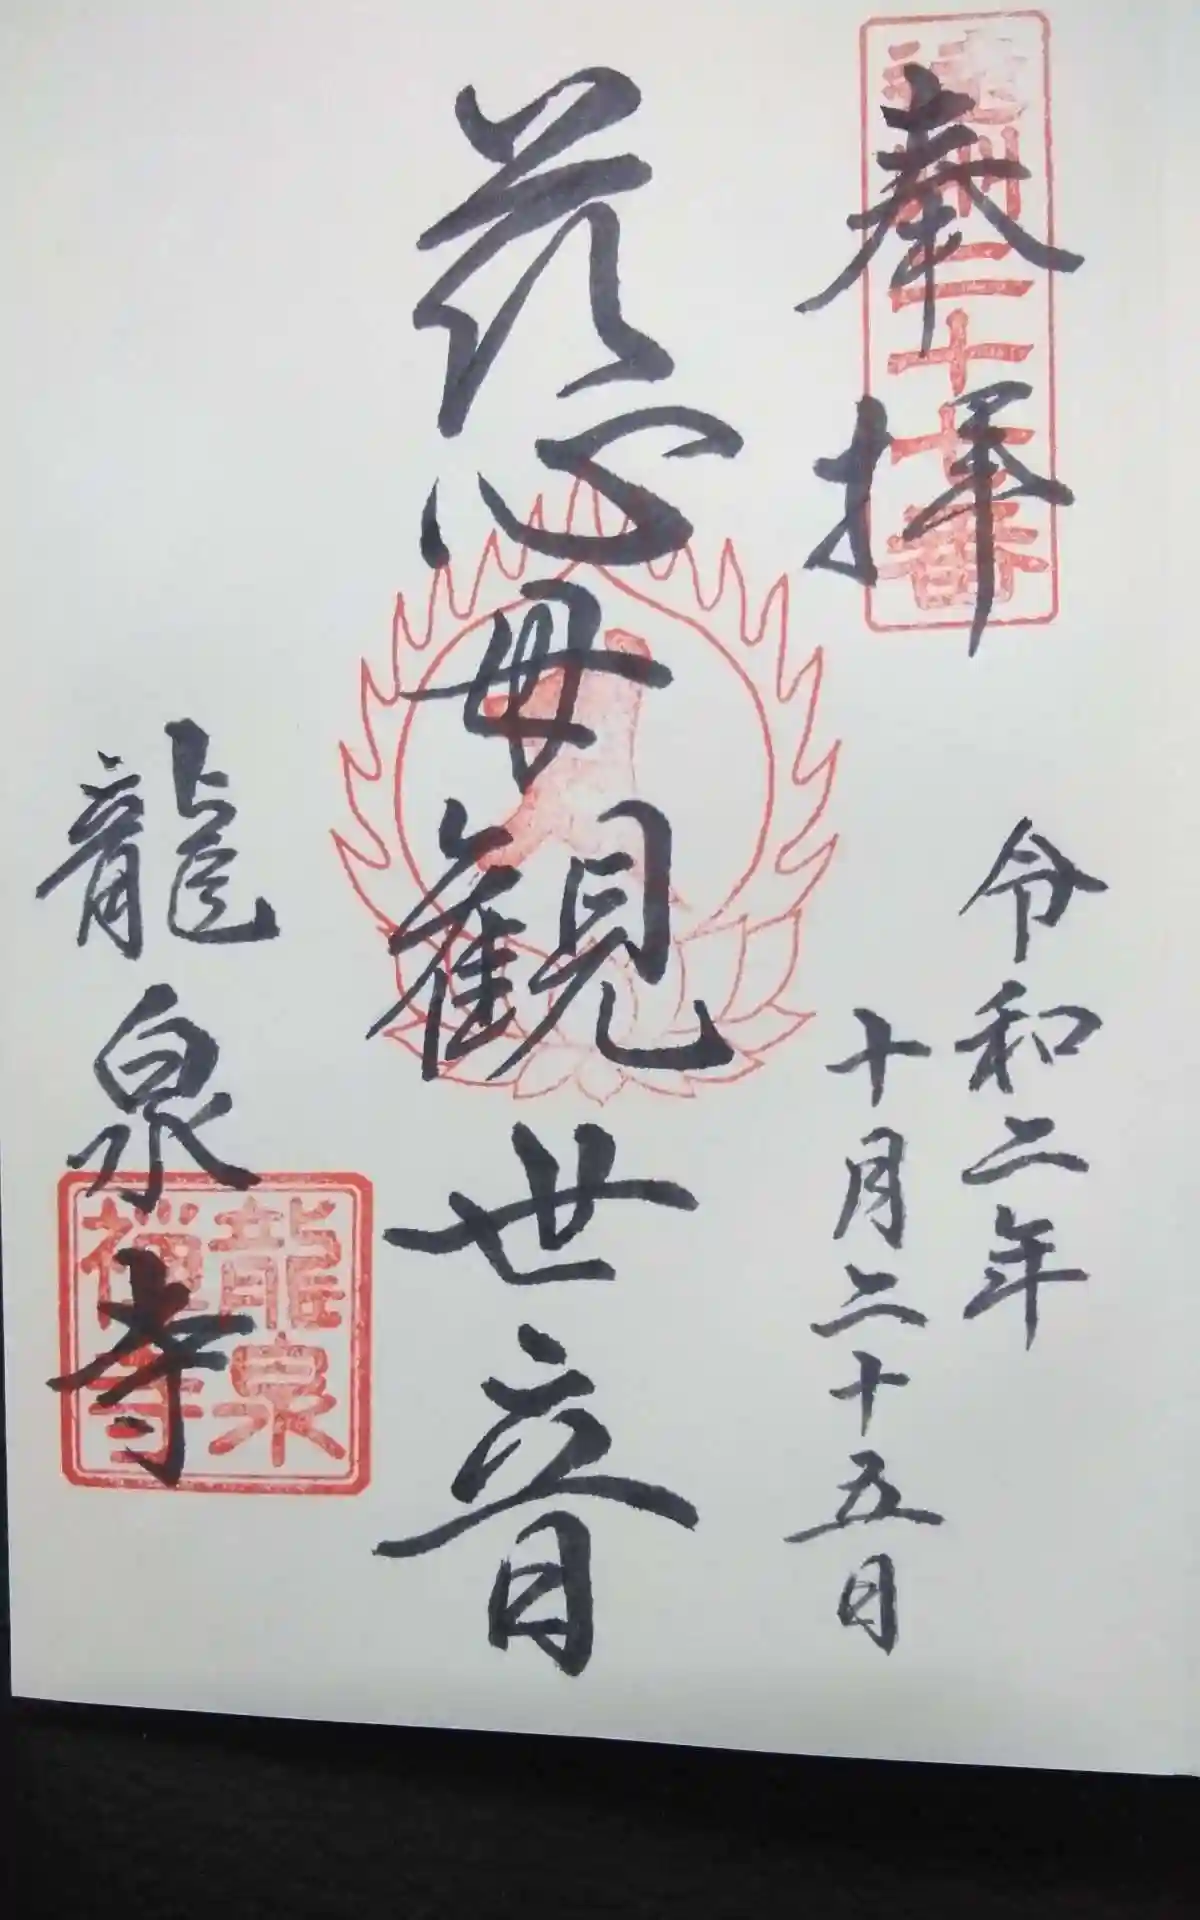 遠州二十七番
奉拝
令和二年
十月二十五日
慈母観世音
龍泉寺
龍泉
禅寺